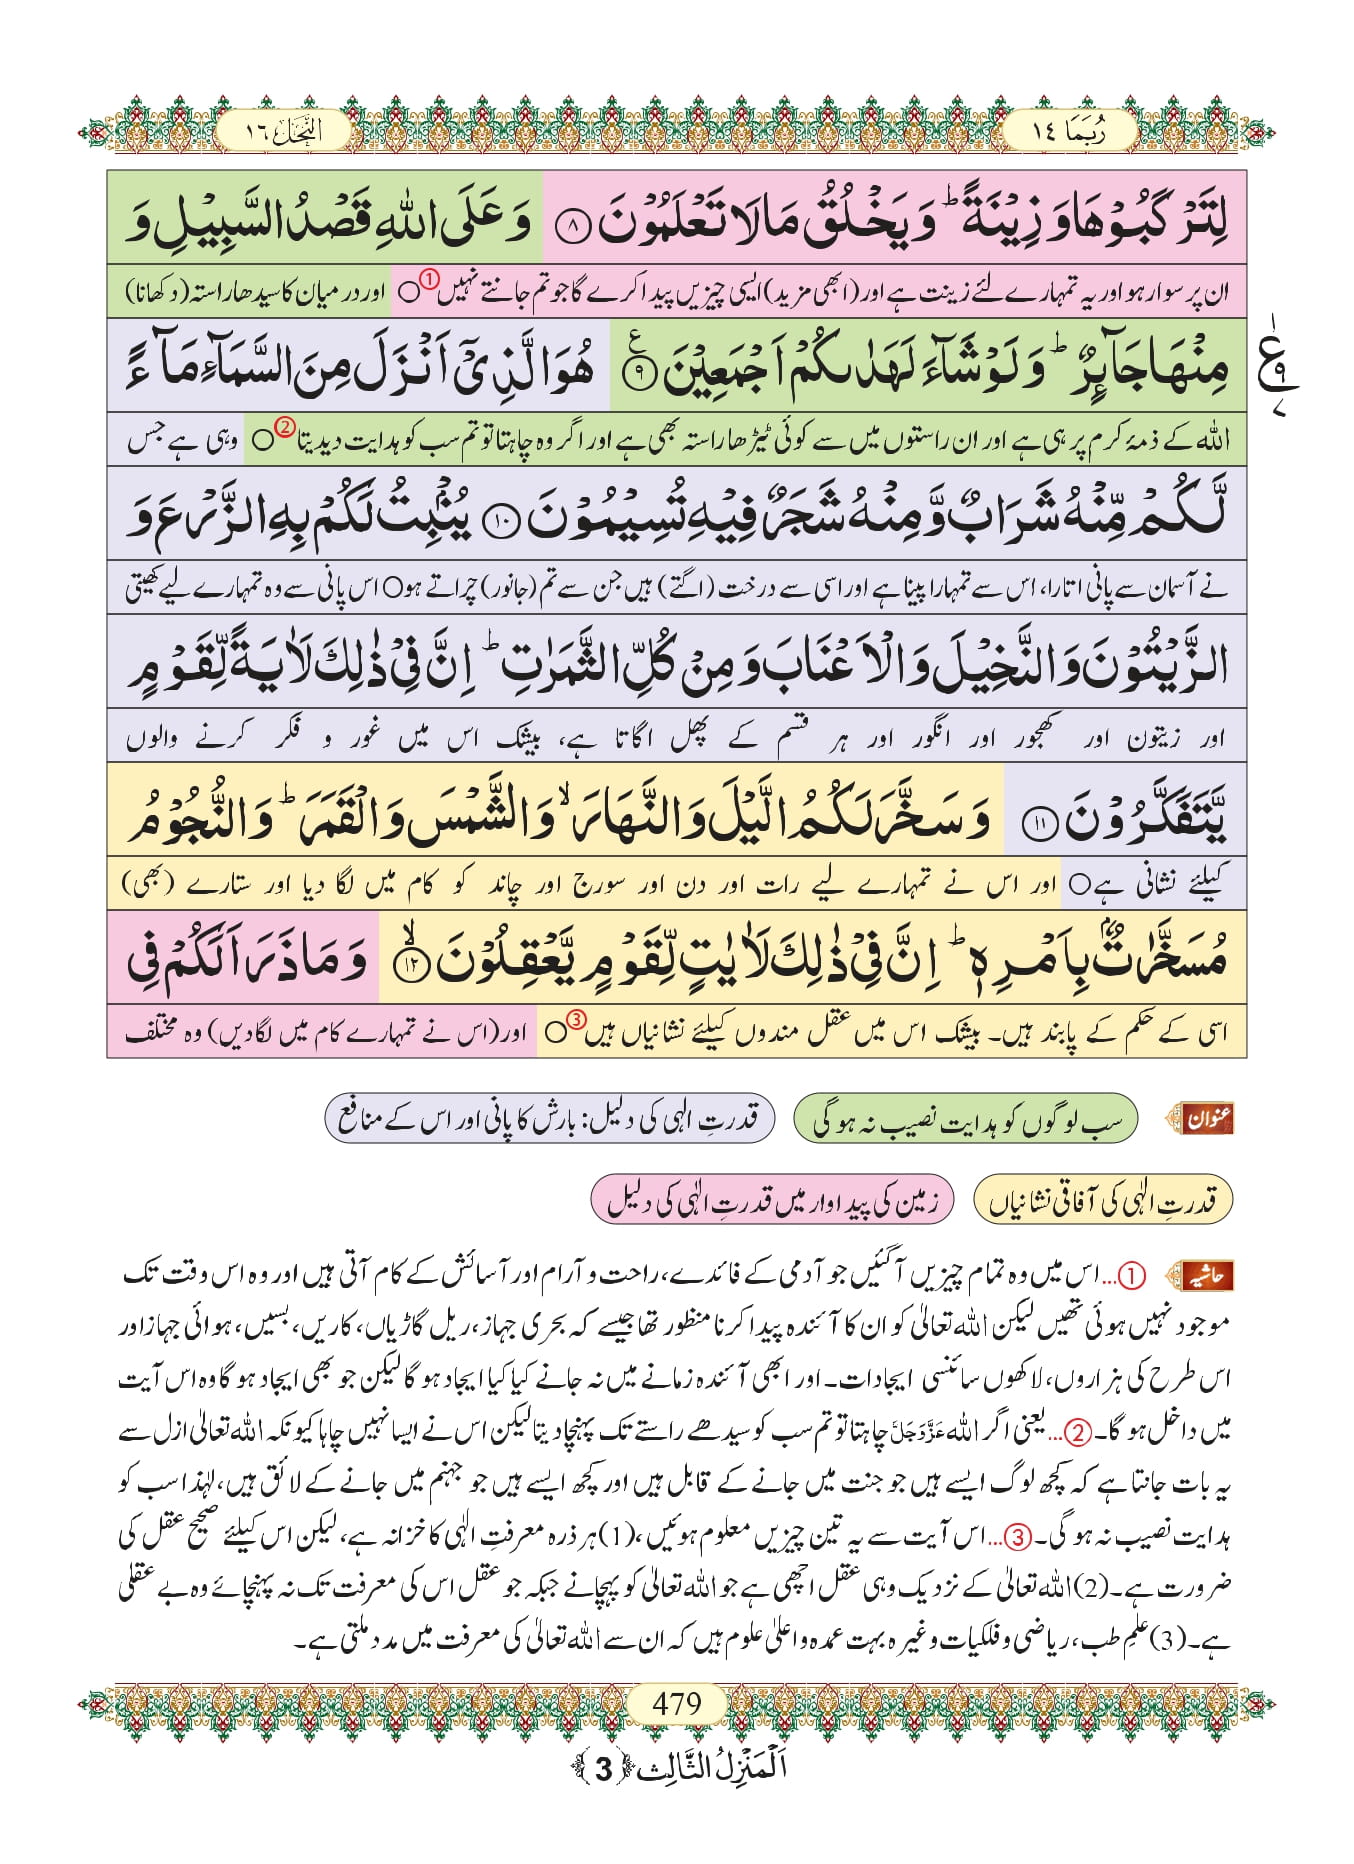 رُبَمَا ١٤
النَّحْل ١٦
لِتَرْكَبُوْهَا وَ زِیْنَةًؕ وَ یَخْلُقُ مَا لَا تَعْلَمُوْنَ ﴿۸﴾ وَ عَلَى اللّٰهِ قَصْدُ السَّبِیْلِ وَ
ان پر سوار ہو اور یہ تمہارے لئے زینت ہے اور (ابھی مزید) ایسی چیزیں پیدا کرے گا جو تم جانتے نہیں① ○ اور درمیان کا سیدھا راستہ (دکھانا)
مِنْهَا جَآىٕرٌؕ وَ لَوْ شَآءَ لَهَدٰىكُمْ اَجْمَعِیْنَ ﴿۹﴾ع هُوَ الَّذِیْۤ اَنْزَلَ مِنَ السَّمَآءِ مَآءً
ع
۱
۹
۷
اللہ کے ذمۂ کرم پر ہی ہے اور ان راستوں میں سے کوئی ٹیڑھا راستہ بھی ہے اور اگر وہ چاہتا تو تم سب کو ہدایت دیدیتا② ○ وہی ہے جس
لَّكُمْ مِّنْهُ شَرَابٌ وَّ مِنْهُ شَجَرٌ فِیْهِ تُسِیْمُوْنَ ﴿۱۰﴾ یُنْۢبِتُ لَكُمْ بِهِ الزَّرْعَ وَ
نے آسمان سے پانی اتارا، اس سے تمہارا پینا ہے اور اسی سے درخت (اگتے) ہیں جن سے تم (جانور) چراتے ہو○ اس پانی سے وہ تمہارے لیے کھیتی
الزَّیْتُوْنَ وَ النَّخِیْلَ وَ الْاَعْنَابَ وَ مِنْ كُلِّ الثَّمَرٰتِؕ اِنَّ فِیْ ذٰلِكَ لَاٰیَةً لِّقَوْمٍ
اور زیتون اور کھجور اور انگور اور ہر قسم کے پھل اگاتا ہے، بیشک اس میں غور و فکر کرنے والوں
یَّتَفَكَّرُوْنَ ﴿۱۱﴾ وَ سَخَّرَ لَكُمُ الَّیْلَ وَ النَّهَارَۙ وَ الشَّمْسَ وَ الْقَمَرَؕ وَ النُّجُوْمُ
کیلئے نشانی ہے○ اور اس نے تمہارے لیے رات اور دن اور سورج اور چاند کو کام میں لگا دیا اور ستارے (بھی)
مُسَخَّرٰتٌۢ بِاَمْرِهٖؕ اِنَّ فِیْ ذٰلِكَ لَاٰیٰتٍ لِّقَوْمٍ یَّعْقِلُوْنَۙ ﴿۱۲﴾ وَ مَا ذَرَاَ لَكُمْ فِی
اسی کے حکم کے پابند ہیں۔ بیشک اس میں عقل مندوں کیلئے نشانیاں ہیں③ ○ اور (اس نے تمہارے کام میں لگادیں) وہ مختلف
عنوان سب لوگوں کو ہدایت نصیب نہ ہوگی قدرتِ الہی کی دلیل: بارش کا پانی اور اس کے منافع
قدرتِ الٰہی کی آفاقی نشانیاں زمین کی پیداوار میں قدرتِ الٰہی کی دلیل
حاشیہ ①...اس میں وہ تمام چیزیں آگئیں جو آدمی کے فائدے، راحت و آرام اور آسائش کے کام آتی ہیں اور وہ اس وقت تک
موجود نہیں ہوئی تھیں لیکن اللہ تعالیٰ کو ان کا آئندہ پیدا کرنا منظور تھا جیسے کہ بحری جہاز، ریل گاڑیاں، کاریں، بسیں، ہوائی جہاز اور
اس طرح کی ہزاروں، لاکھوں سائنسی ایجادات۔ اور ابھی آئندہ زمانے میں نہ جانے کیا کیا ایجاد ہوگا لیکن جو بھی ایجاد ہوگا وہ اس آیت
میں داخل ہوگا۔ ②...یعنی اگر اللہ عَزَّوَجَلَّ چاہتا تو تم سب کو سیدھے راستے تک پہنچا دیتا لیکن اس نے ایسا نہیں چاہا کیونکہ اللہ تعالیٰ ازل سے
یہ بات جانتا ہے کہ کچھ لوگ ایسے ہیں جو جنت میں جانے کے قابل ہیں اور کچھ ایسے ہیں جو جہنم میں جانے کے لائق ہیں، لہٰذا سب کو
ہدایت نصیب نہ ہوگی۔ ③...اس آیت سے یہ تین چیزیں معلوم ہوئیں، (1) ہر ذرہ معرفتِ الٰہی کا خزانہ ہے، لیکن اس کیلئے صحیح عقل کی
ضرورت ہے۔ (2) اللہ تعالیٰ کے نزدیک وہی عقل اچھی ہے جو اللہ تعالیٰ کو پہچانے جبکہ جو عقل اس کی معرفت تک نہ پہنچائے وہ بے عقلی
ہے۔ (3) علمِ طب، ریاضی و فلکیات وغیرہ بہت عمدہ و اعلیٰ علوم ہیں کہ ان سے اللہ تعالیٰ کی معرفت میں مدد ملتی ہے۔
479
اَلْمَنْزِلُ الثَّالِث ﴿3﴾